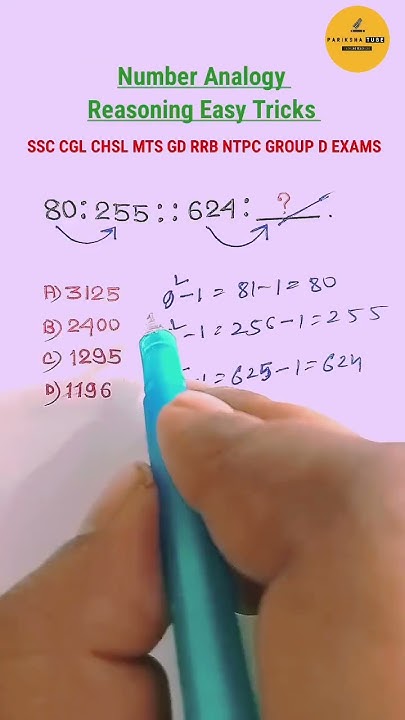 PARIKSHA TUBE
Number Analogy
Reasoning Easy Tricks
SSC CGL CHSL MTS GD RRB NTPC GROUP D EXAMS
80:255::624: ?.
A) 3125
B) 2400
C) 1295
D) 1196
9²-1 = 81-1 = 80
²-1 = 256-1 = 255
-1 = 625-1 = 624